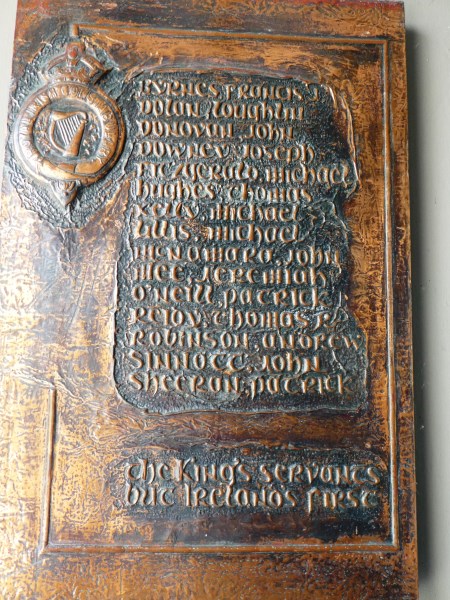 BYRNES FRANCIS J
DOLAN LOUGHLIN
DONOVAN, JOHN
DOWNEY JOSEPH
FITZGERALD, MICHAEL
HUGHES, THOMAS
KELLY, MICHAEL
LILLIS, MICHAEL
McNAMARA, JOHN
MEE JEREMIAH
O'NEILL PATRICK
REIDY, THOMAS
ROBINSON, ANDREW
SINNOTT, JOHN
SHEERAN, PATRICK
THE KING'S SERVANTS
BUT IRELAND'S FIRST